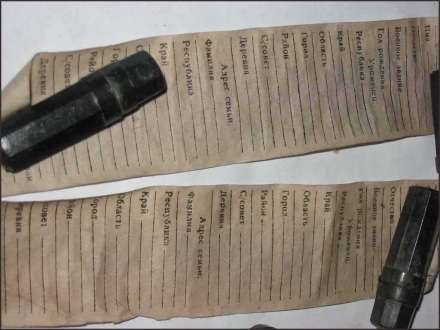 Имя
Отчество
Военное звание
Год рождения
Уроженец:
Республика
Край
Область
Город
Район
С/совет
Деревня
Адрес семьи:
Фамилия
Республика
Край
Деревня
Отчество
Военное звание
Год рождения
Уроженец:
Республика
Край
Область
Город
Район
С/совет
Деревня
Адрес семьи:
Фамилия
Республика
Край
Область
ород
совет